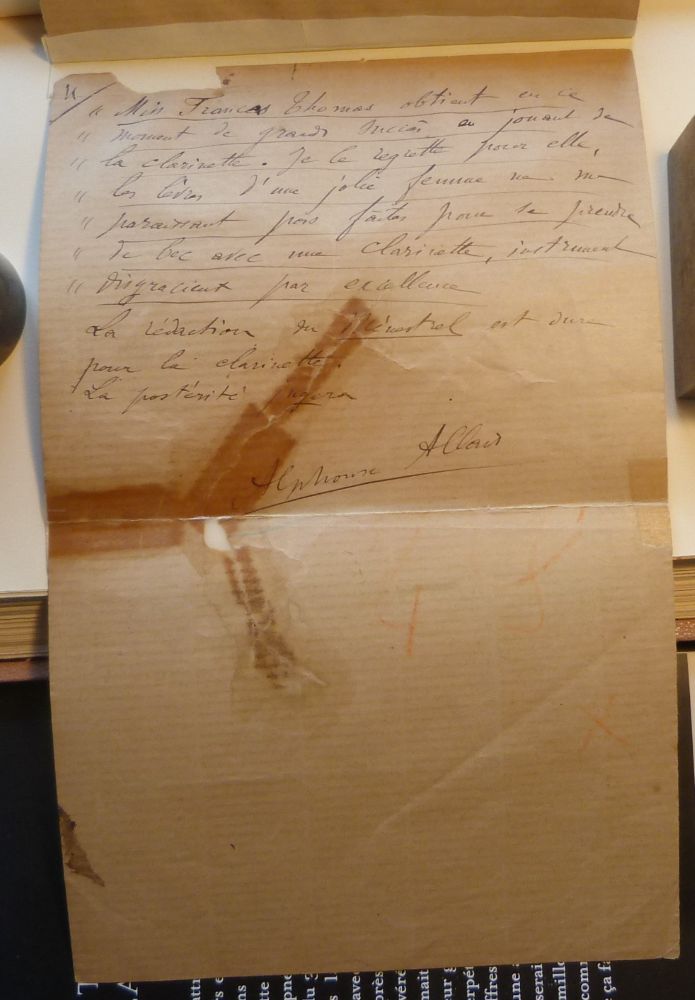 4/
" Miss Frances Thomas obtient en ce
" moment de grands succès en jouant de
" la clarinette. Je le regrette pour elle,
" les lèvres d'une jolie femme ne me
" paraissant pas faites pour se prendre
" de bec avec une clarinette, instrument
" disgracieux par excellence
La rédaction du Ménestrel est dure
pour la clarinette.
La postérité jugera
Alphonse Allais